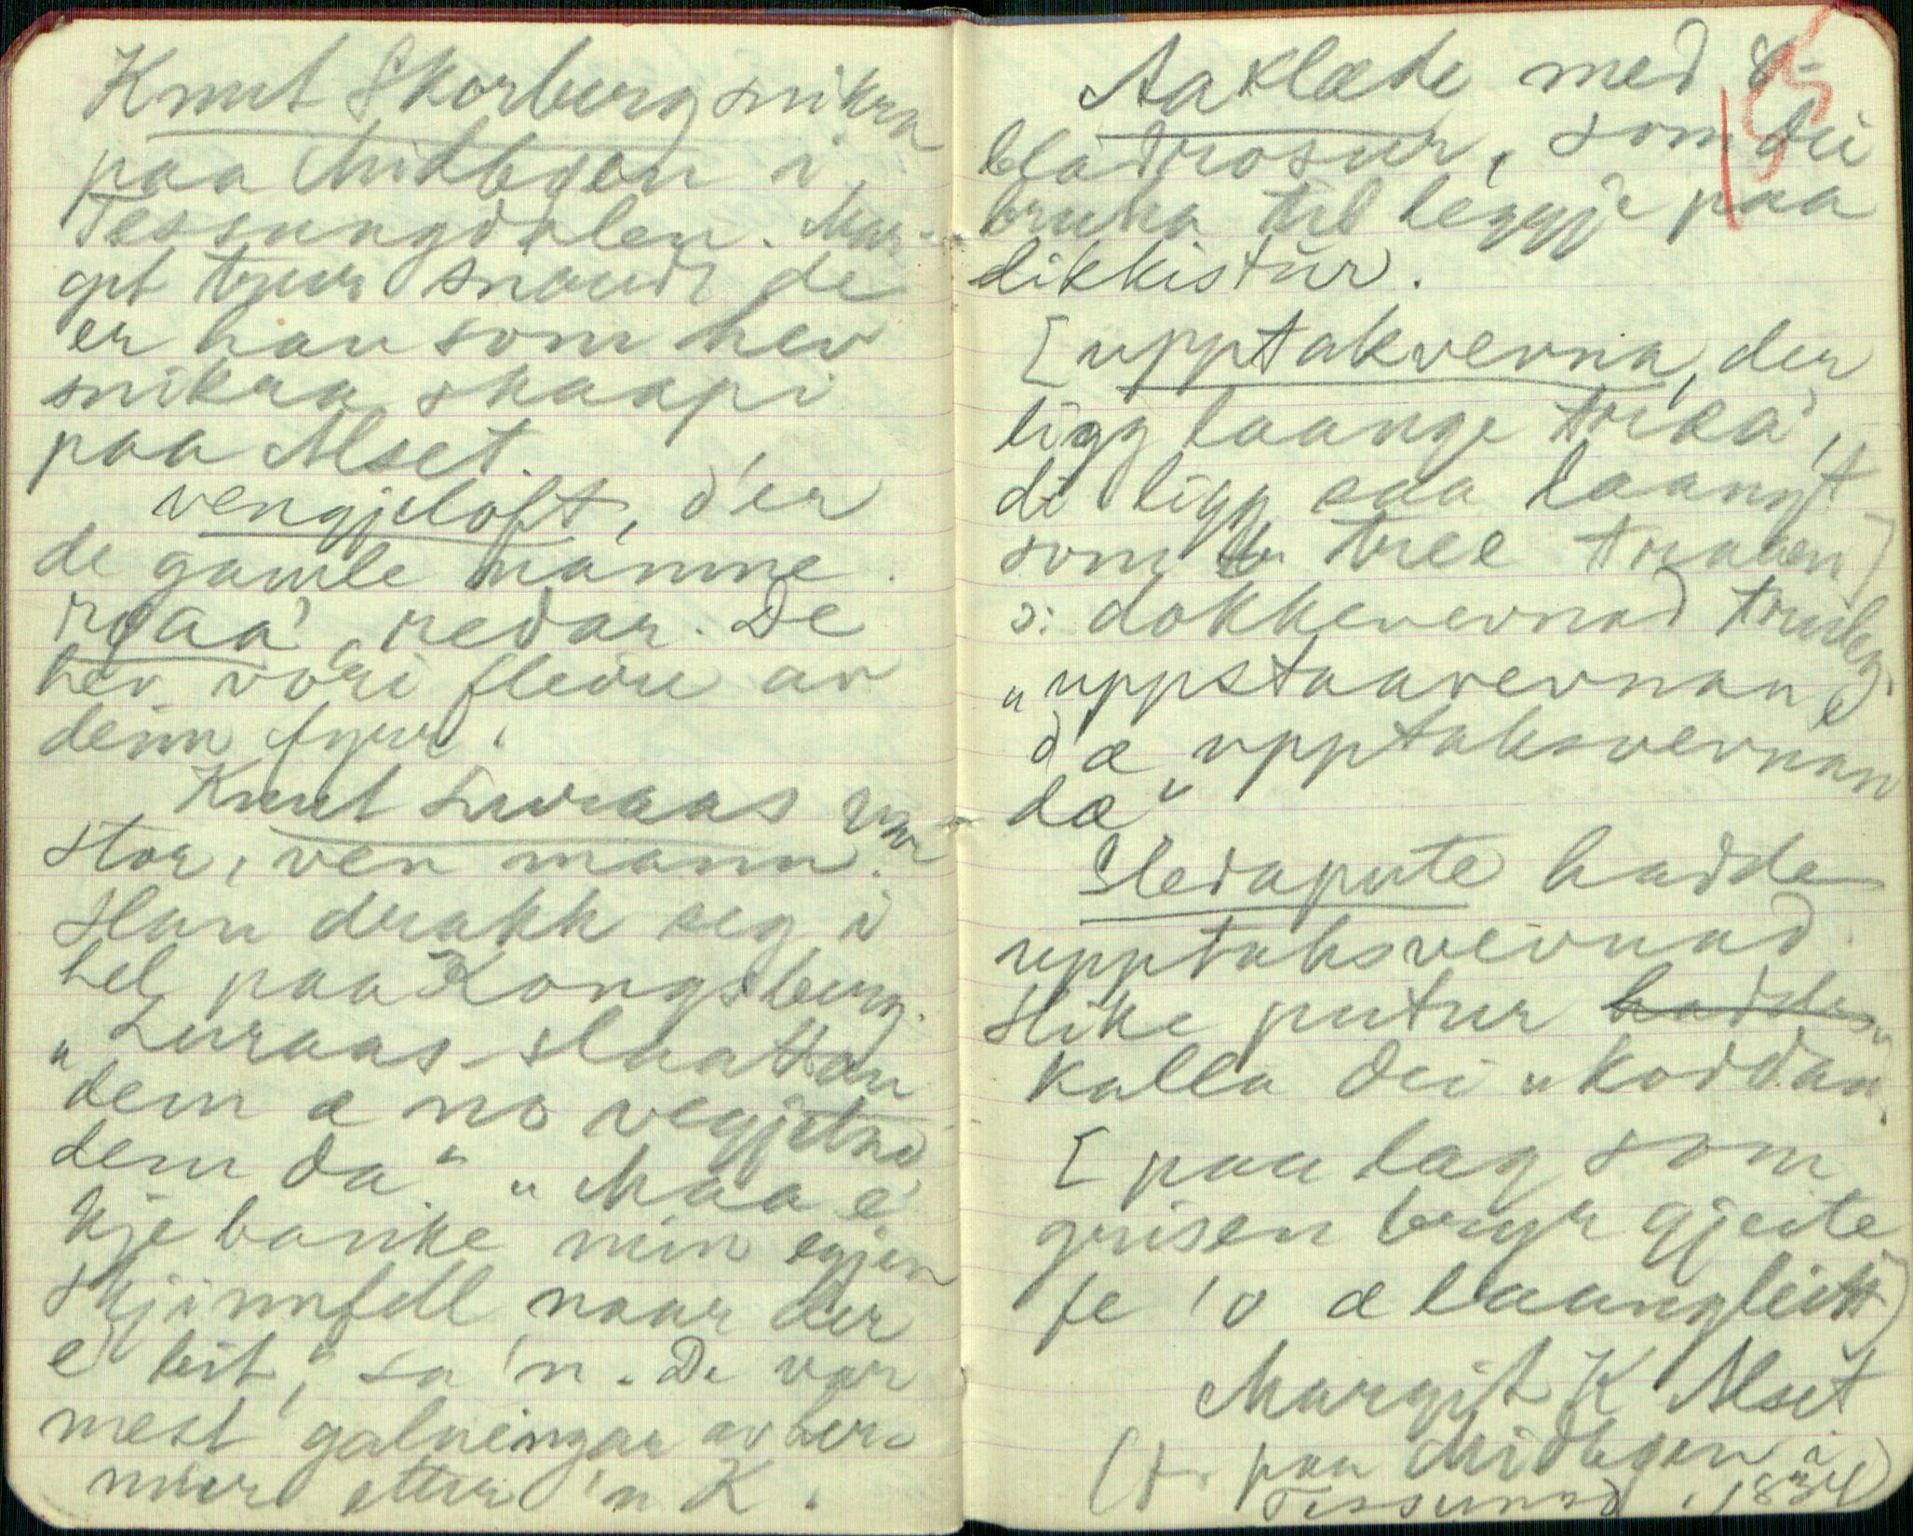 Knut Skorberg snikra
paa Midbgen i
Tessungdalen. Mar-
git trur snaudt de
er han som hev
snikra skaapi
paa Alset.
vengjeloft, d'er
de gamle namne.
rjaa', redar. De
hev vori fleire av
deim fyrr.
Knut Luraas var
stor, ven mann.
Han drakk seg i
hel paa Kongsberg.
"Luraas-slaattan
dem æ no
dem da" "Maa e
kje banke min egjen
skjinnfell naar der
e beit," sa 'n. De var
mest galneingar av her-
mur etter 'n K.
Aaklæde med 8-
bladrosur, som dei
bruka til leggje paa
likkistur.
[upptakverna, der
ligg laange træa',
di ligg saa laangt
som tree træaen]
ɔ: dokkevevnad truleg.
"uppstaavevnan
d æ upptaksvevnan
dæ"
Sledapute hadde
upptaksvevnad.
Slike putur hadde
kalla dei "koddan".
[paa lag som
grisen bryr gjeite
fe 'o æ laangleitt]
Margit K Alset
(f. paa Midbgen i
Tessungd. 1834)